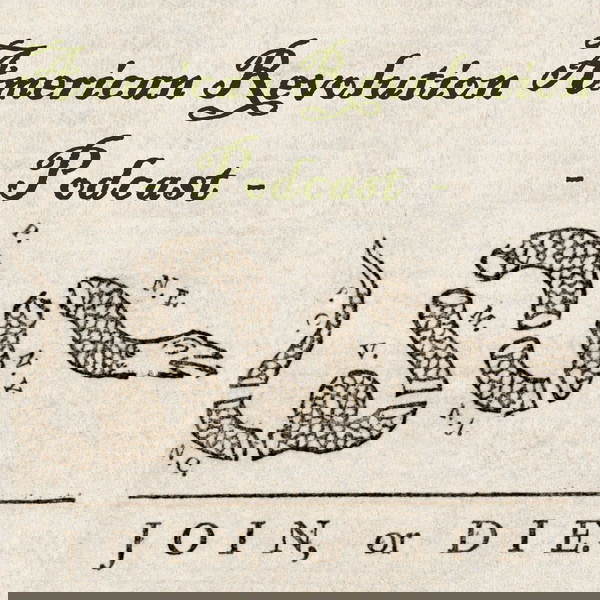 American Revolution A
- Podcast - Podcast - -
P.
N.E.
M.
V.
JOIN, or DIE.